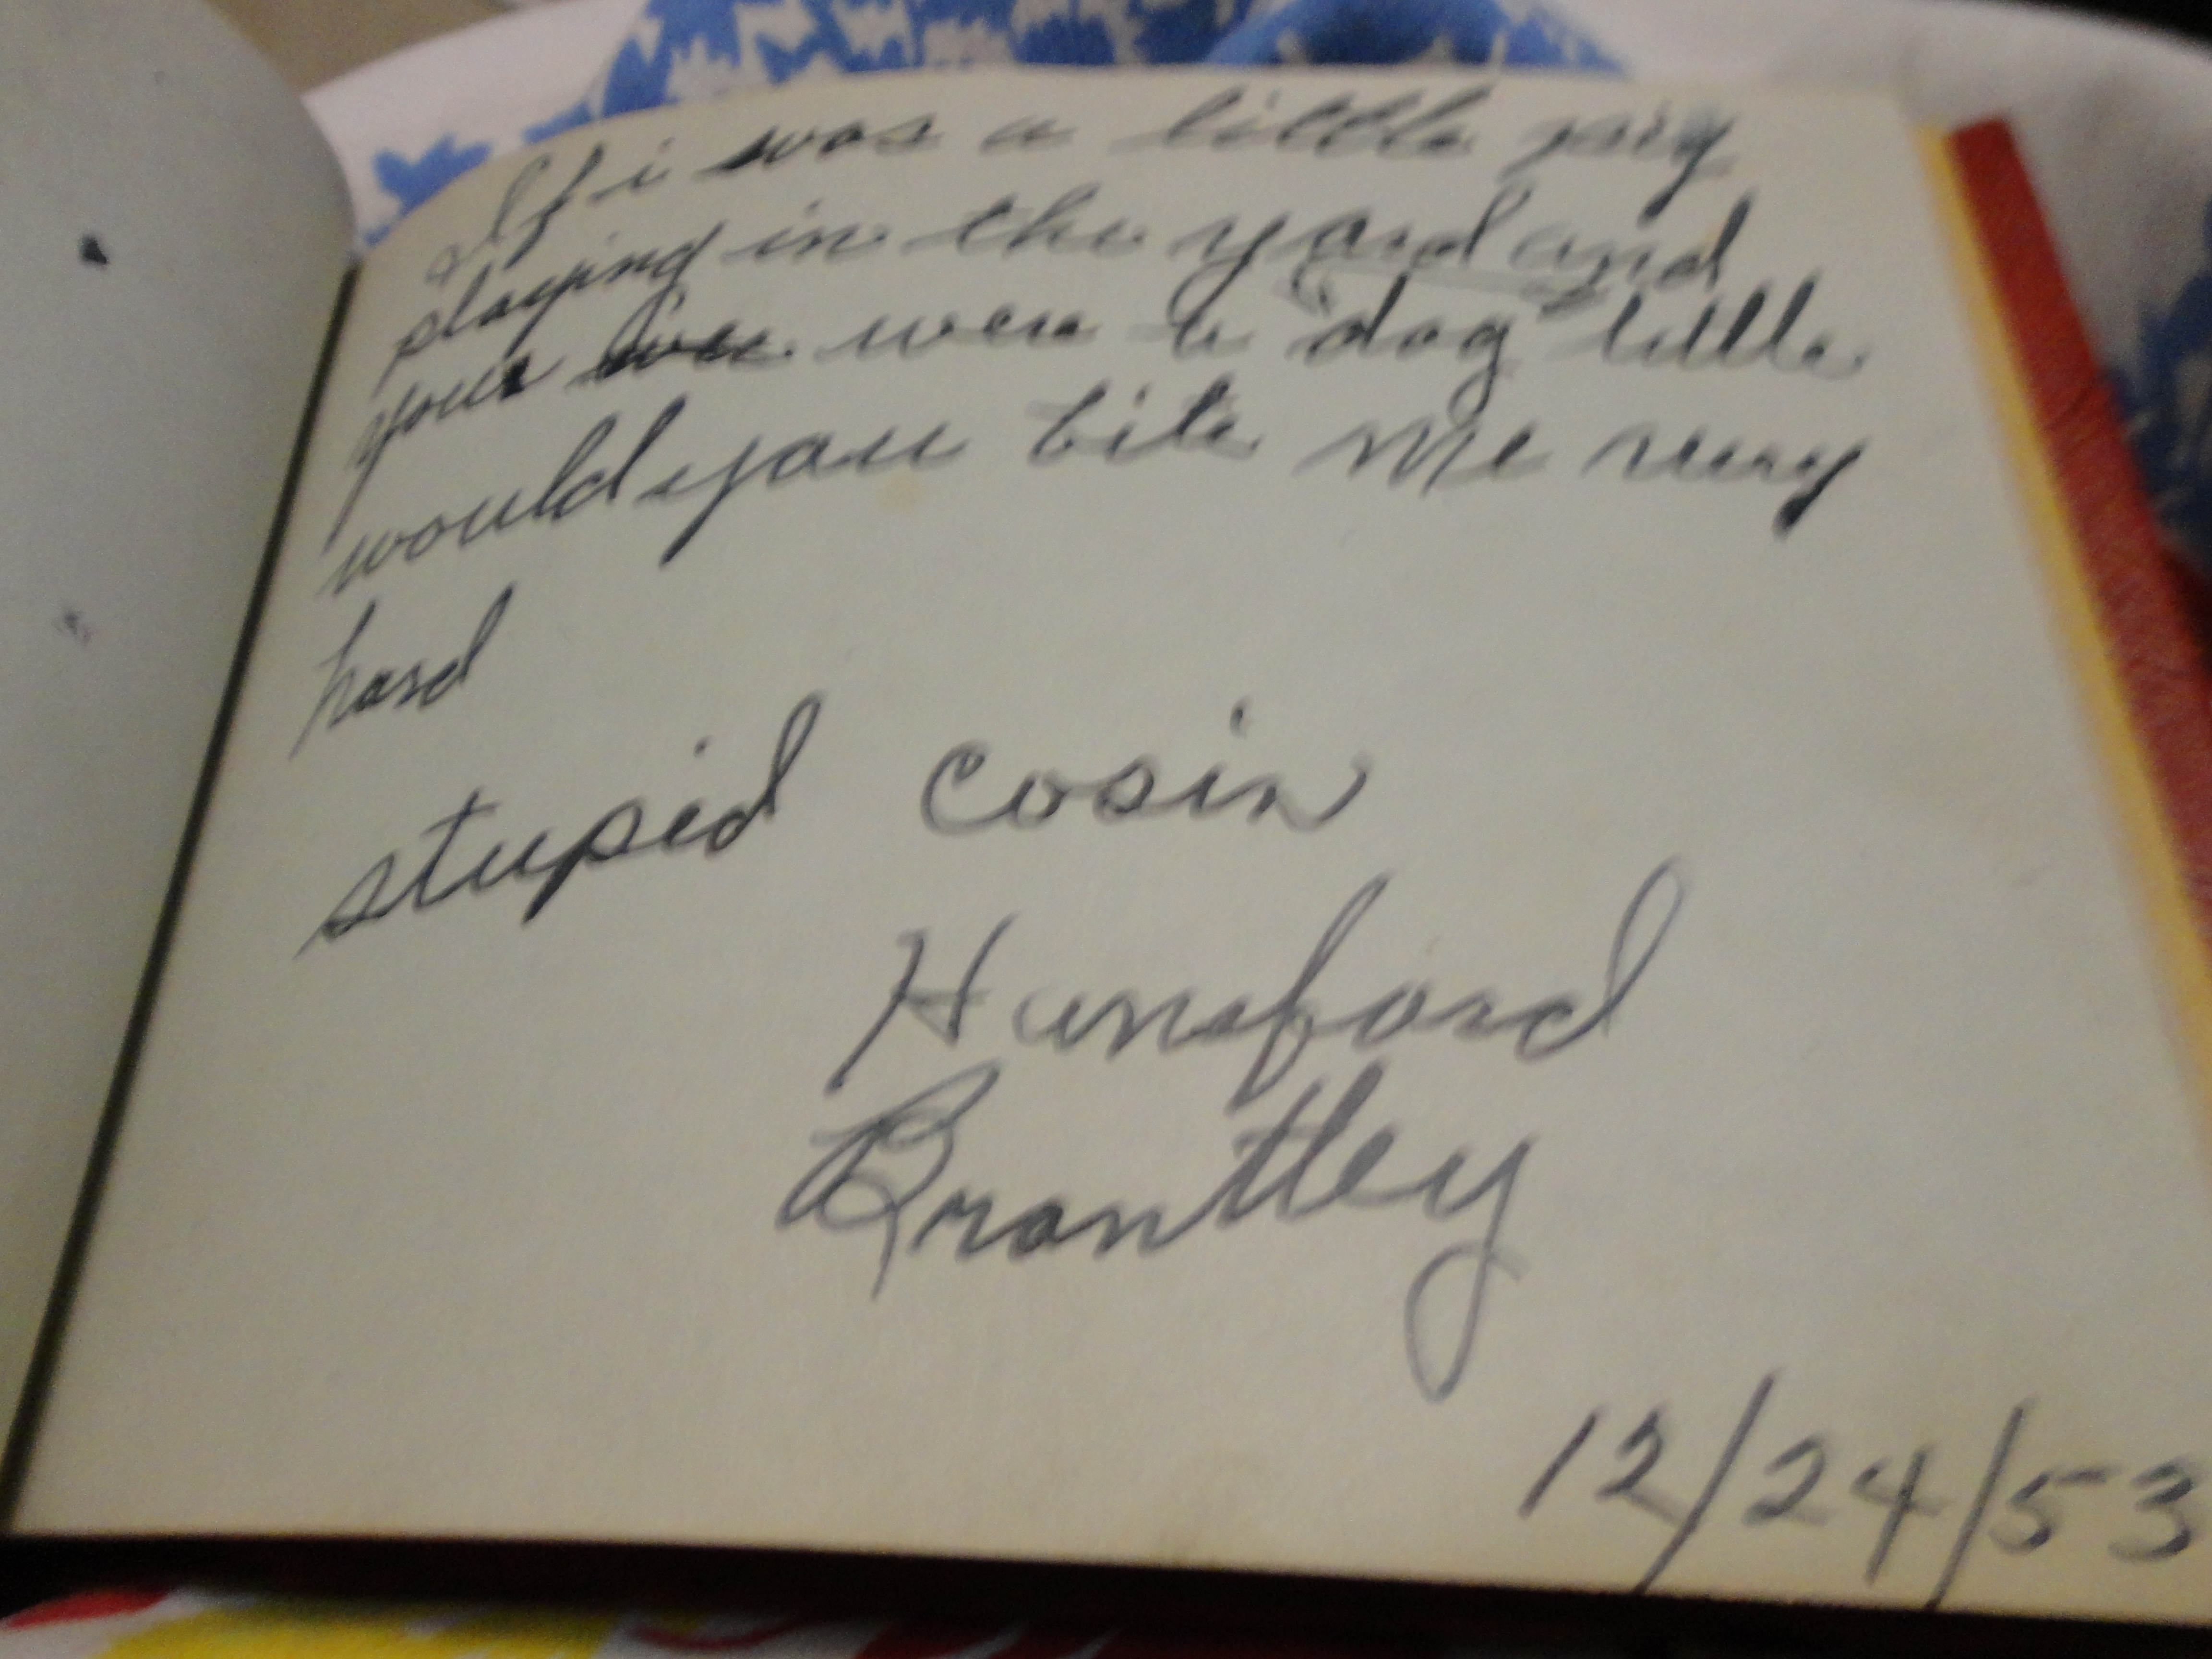 If i was a little pig
playing in the yard and
your were a dog little
would you bite me very
hard
stupid cosin
Hansford
Brantley
12/24/53